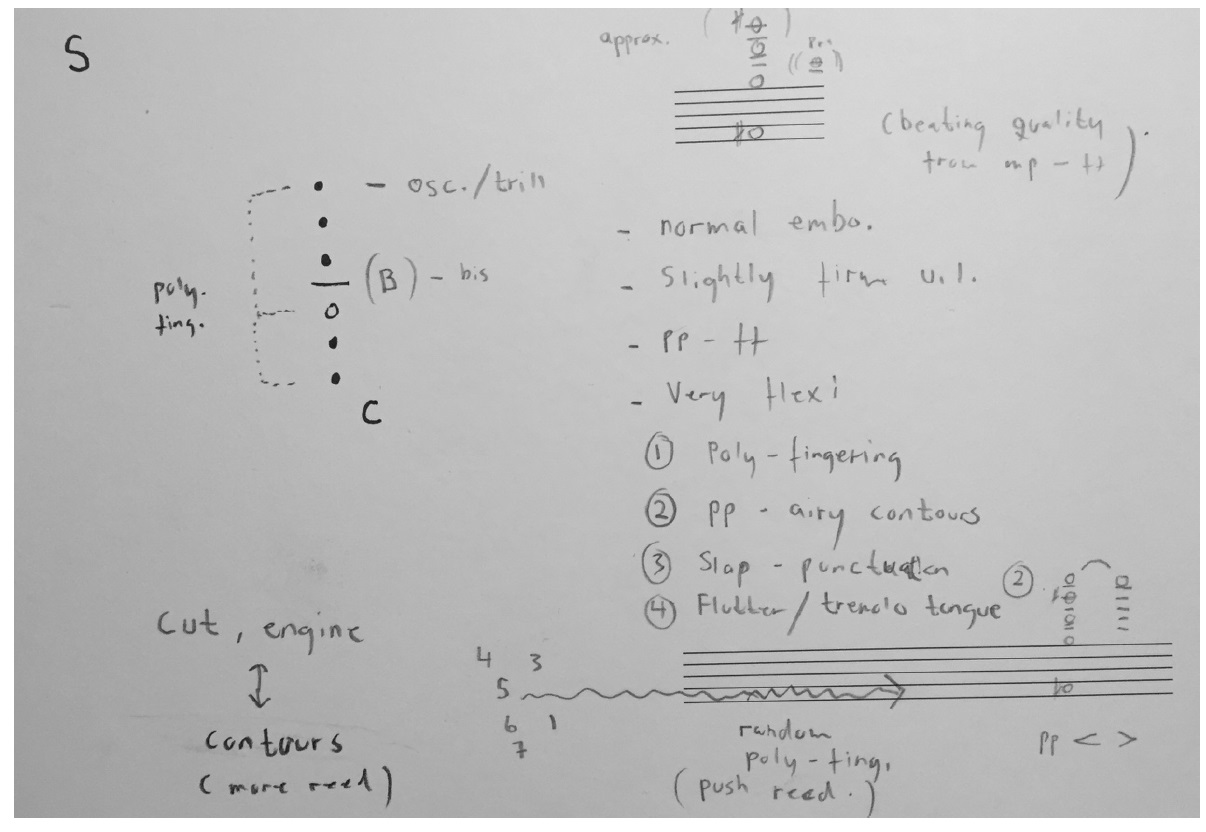 S
approx.
ppp
(beating quality
from mp - ff)
- osc./trill
(B) - bis
poly.
fing.
C
- normal embo.
- Slightly firm u.l.
- pp - ff
- Very flexi
① Poly-fingering
② pp - airy contours
③ Slap - punctuation
④ Flutter/tremolo tongue
②
cut, engine
contours
(more reed)
4 3
5
6 1
7
random
poly-fing.
(push reed.)
pp < >